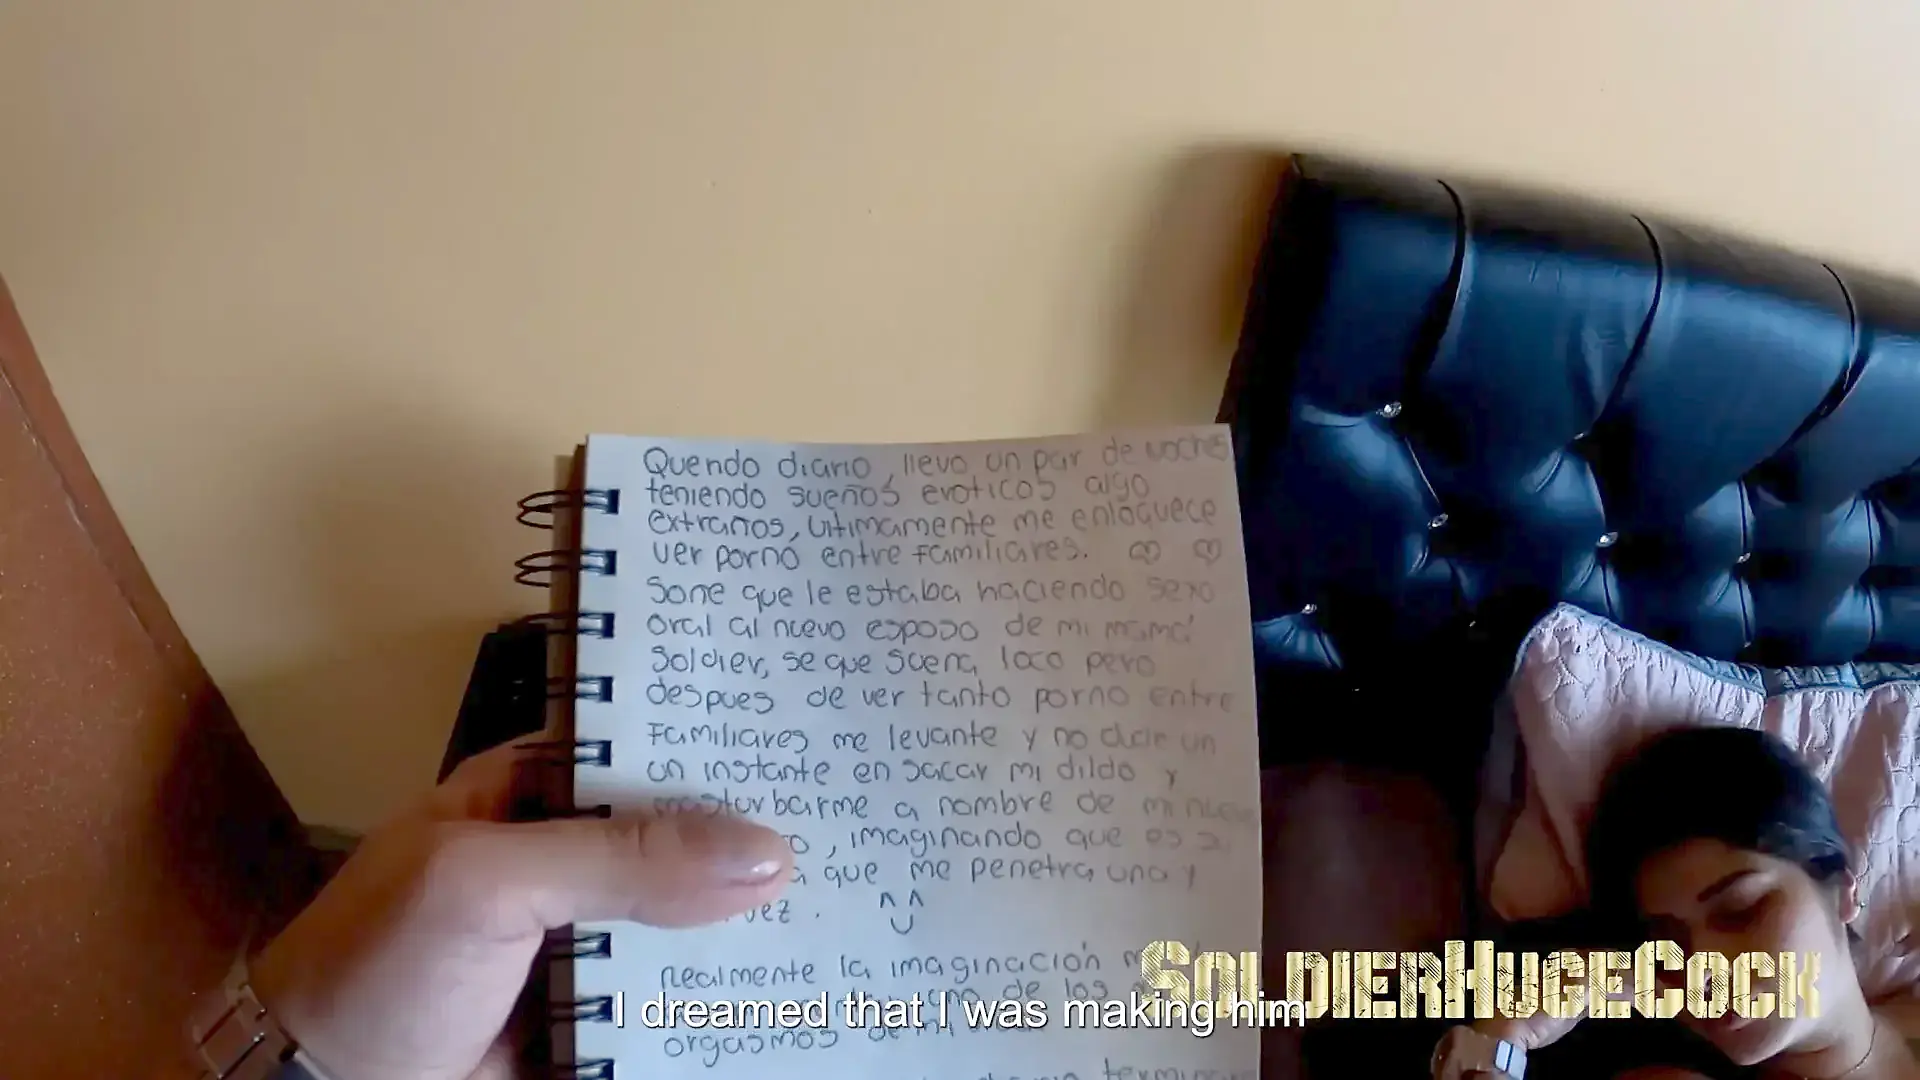 Quendo diario, llevo un par de noches
teniendo sueños eroticos algo
extraños, Ultimamente me enloquece
ver porno entre familiares.
Soñe que le estaba haciendo sexo
oral al nuevo esposo de mi mamá
Soldier, se que suena loco pero
despues de ver tanto porno entre
Familiares me levante y no dude un
un instante en sacar mi dildo y
masturbarme a nombre de mi
, imaginando que es
que me penetra una y
vez.
Realmente la imaginación
de los
orgasmos de mi
SOLDIERHUGECOCK
I dreamed that I was making him